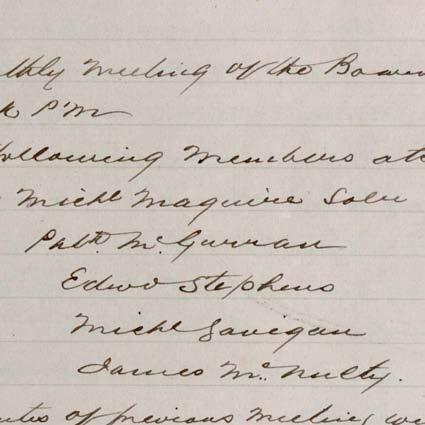 thly Meeting of the Board
k P'M
following Members att
Michl Maguire Solr
Patk. Mc. Gurran
Edwd Stephens
Michl Gavigan
James Mc. Nulty.
utes of previous Meeting we